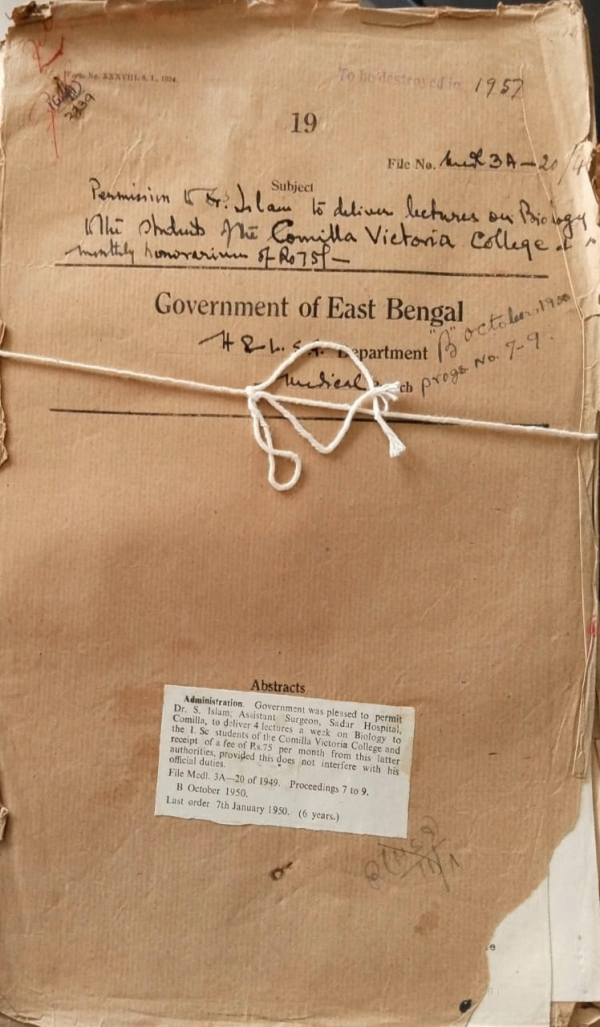 Form No. XXXVIII-S. I., 1934.
To be destroyed in 1957
19
File No. Medl 3A-20/4
Subject
Permission to Dr. Islam to deliver lectures on Biology
to the students of the Comilla Victoria College at a
monthly honorarium of Rs 75/-
Government of East Bengal
H & L. S. G. Department
"B" October, 1950
Medical
progs No. 7-9.
Abstracts
Administration. Government was pleased to permit
Dr. S. Islam, Assistant Surgeon, Sadar Hospital,
Comilla, to deliver 4 lectures a week on Biology to
the I. Sc students of the Comilla Victoria College and
receipt of a fee of Rs.75 per month from this latter
authorities, provided this does not interfere with his
official duties.
File Medl. 3A—20 of 1949. Proceedings 7 to 9.
B October 1950.
Last order 7th January 1950. (6 years.)